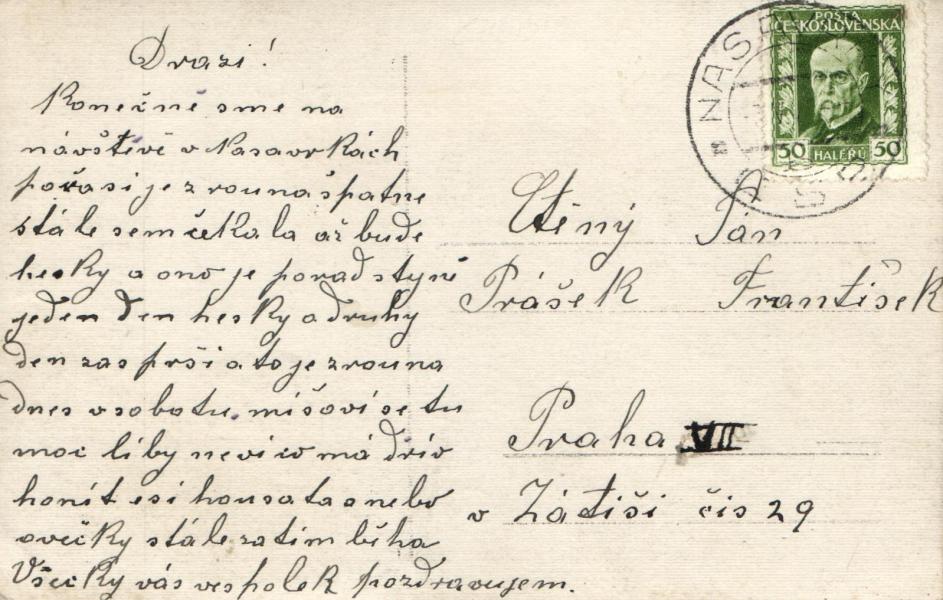 Drazí!
Konečně sme na
návštěvě v Nasavrkách
počasí je zrouna špatne
stále sem čekala až bude
hesky a ono je porad styné
jeden den hesky a druhy
den zas prši a to je zrouna
dnes v sobotu, mišovi se tu
moc líby neví co má dřív
honit esi housata a nebo
ovečky stále za tim běha
Všecky vás vespolek pozdravujem.
POŠTA
ČESKOSLOVENSKÁ
50 HALÉŘŮ 50
NASA
Ctěný Pán
Prášek František
Praha VII
v Zátiši čis 29